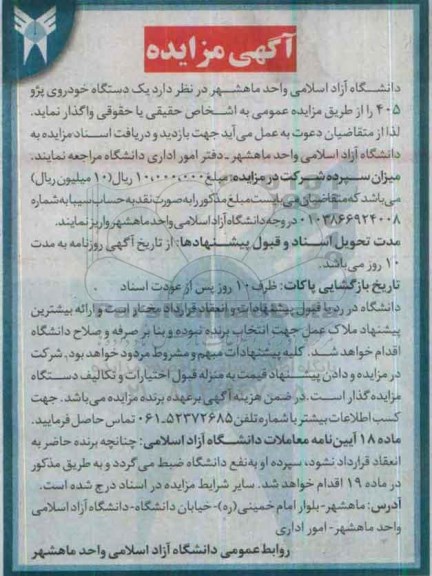 آگهی مزایده
دانشگاه آزاد اسلامی واحد ماهشهر در نظر دارد یک دستگاه خودروی پژو
۴۰۵ را از طریق مزایده عمومی به اشخاص حقیقی یا حقوقی واگذار نماید.
لذا از متقاضیان دعوت به عمل می آید جهت بازدید و دریافت اسناد مزایده به
دانشگاه آزاد اسلامی واحد ماهشهر - دفتر امور اداری دانشگاه مراجعه نمایند.
میزان سپرده شرکت در مزایده: مبلغ ۱۰,۰۰۰,۰۰۰ ریال (۱۰ میلیون ریال)
می باشد که متقاضیان می بایست مبلغ مذکور را به صورت نقد به حساب سیبا به شماره
۰۱۰۳۸۶۶۹۲۴۰۰۸ در وجه دانشگاه آزاد اسلامی واحد ماهشهر واریز نمایند.
مدت تحویل اسناد و قبول پیشنهادها: از تاریخ آگهی روزنامه به مدت
۱۰ روز می باشد.
تاریخ بازگشایی پاکات: ظرف ۱۰ روز پس از عودت اسناد
دانشگاه در رد یا قبول پیشنهادات و انعقاد قرارداد مختار است و ارائه بیشترین
پیشنهاد ملاک عمل جهت انتخاب برنده نبوده و بنا بر صرفه و صلاح دانشگاه
اقدام خواهد شد. کلیه پیشنهادات مبهم و مشروط مردود خواهد بود. شرکت
در مزایده و دادن پیشنهاد قیمت به منزله قبول اختیارات و تکالیف دستگاه
مزایده گذار است. در ضمن هزینه آگهی بر عهده برنده مزایده می باشد. جهت
کسب اطلاعات بیشتر با شماره تلفن ۵۲۳۷۲۶۸۵-۰۶۱ تماس حاصل فرمایید.
ماده ۱۸ آیین نامه معاملات دانشگاه آزاد اسلامی: چنانچه برنده حاضر به
انعقاد قرارداد نشود، سپرده او به نفع دانشگاه ضبط می گردد و به طریق مذکور
در ماده ۱۹ اقدام خواهد شد. سایر شرایط مزایده در اسناد درج شده است.
آدرس: ماهشهر- بلوار امام خمینی (ره)- خیابان دانشگاه- دانشگاه آزاد اسلامی
واحد ماهشهر- امور اداری
روابط عمومی دانشگاه آزاد اسلامی واحد ماهشهر